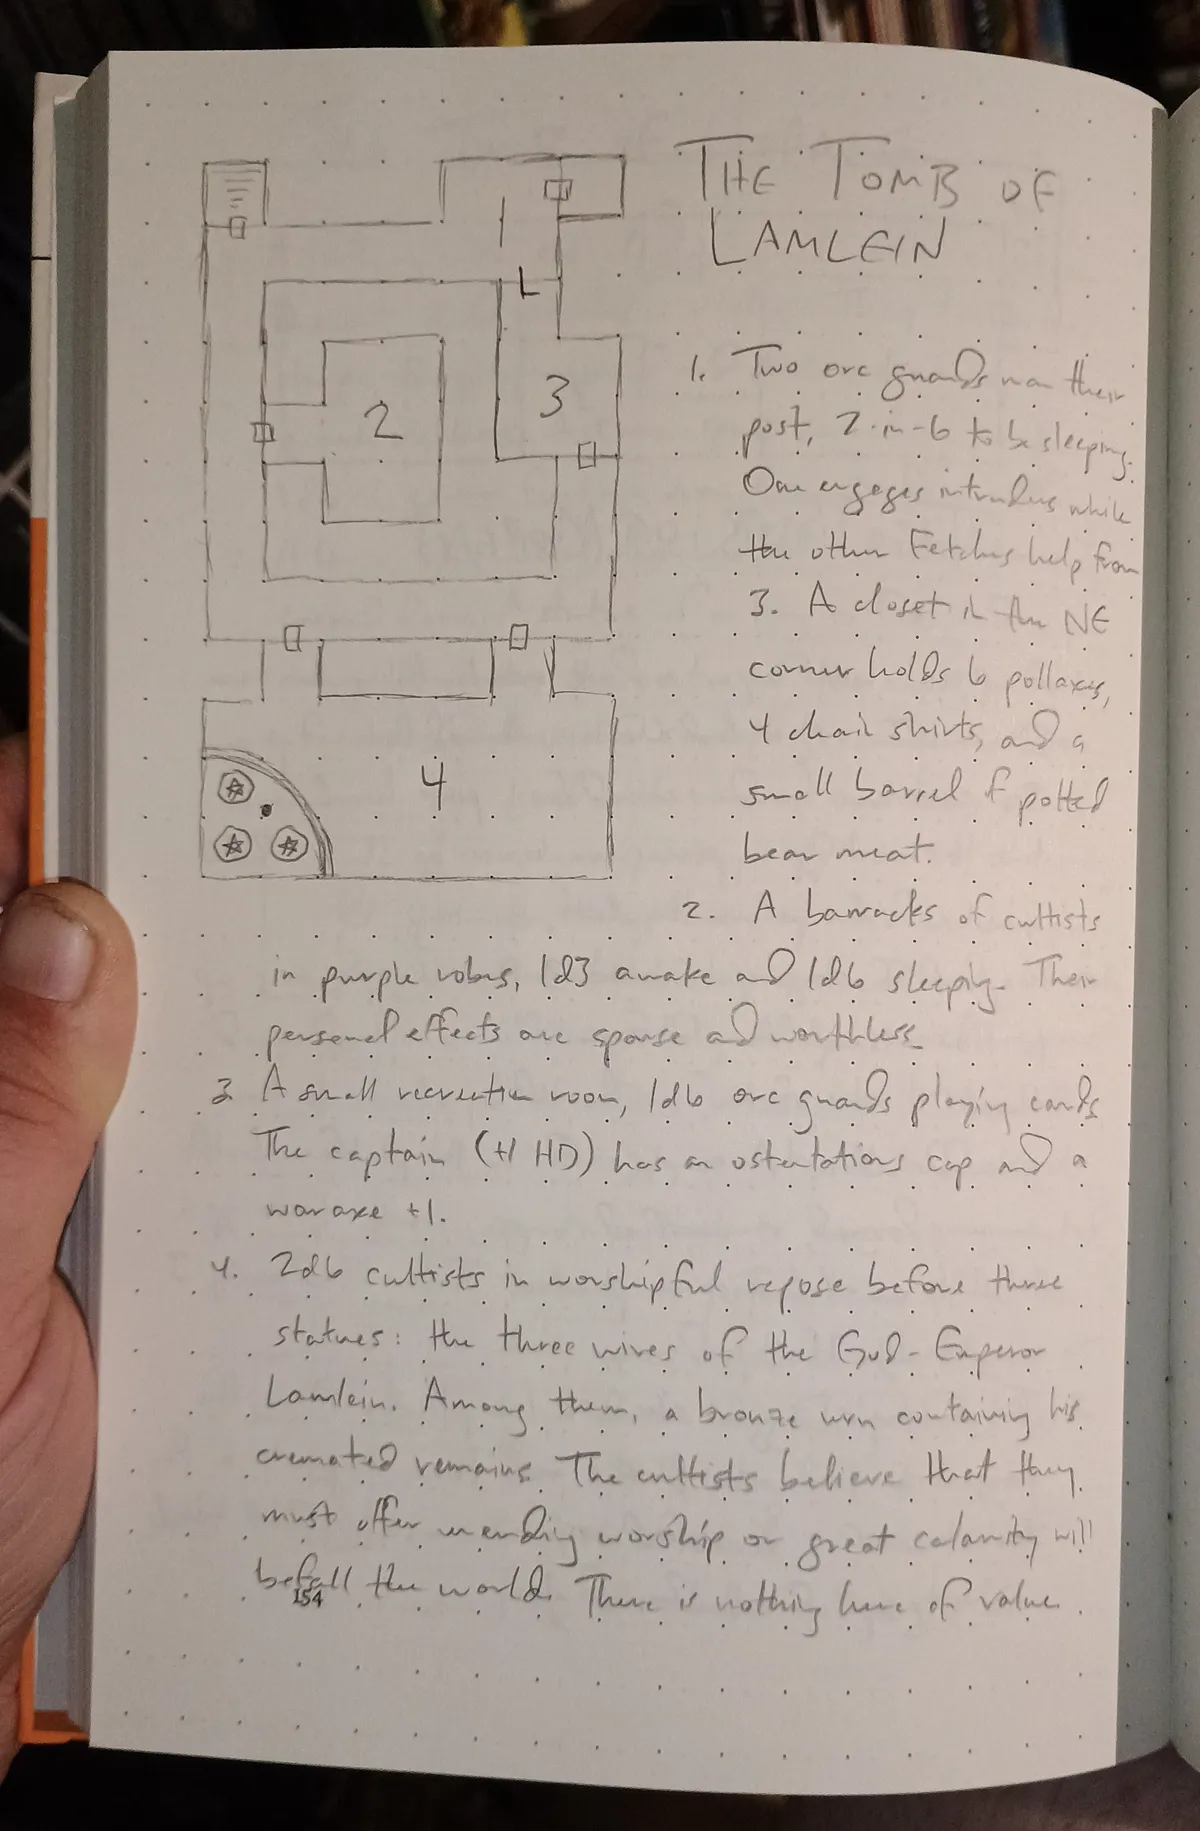 THE TOMB OF
LAMLEIN
1
L
2
3
4
1. Two orc guards man their
post, 2-in-6 to be sleeping.
One engages intruders while
the other fetches help from
3. A closet in the NE
corner holds 6 pollaxes,
4 chain shirts, and a
small barrel of potted
bear meat.
2. A barracks of cultists
in purple robes, 1d3 awake and 1d6 sleeping. Their
personal effects are sparse and worthless.
3 A small recreation room, 1d6 orc guards playing cards
The captain (+1 HD) has an ostentatious cap and a
war axe +1.
4. 2d6 cultists in worshipful repose before three
statues: the three wives of the God-Emperor
Lamlein. Among them, a bronze urn containing his
cremated remains. The cultists believe that they
must offer unending worship or great calamity will
befall the world. There is nothing here of value.
154